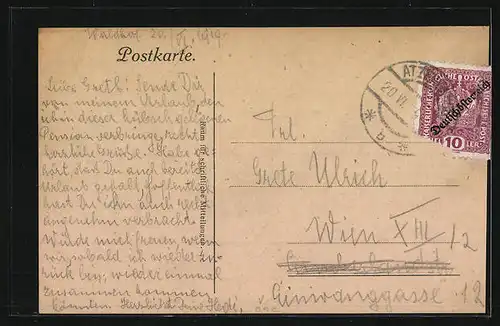 Waldhof 20./VI. 1919.
Postkarte.
Liebe Grethl! Sende Dir
von meinem Urlaub, den
ich in dieser hübsch gelegenen
Pension verbringe, recht
herzliche Grüsse. Habe ge-
hört, dass Du auch bereits
Urlaub gehabt, hoffent-
lich hast Du ihn auch recht
angenehm verbracht.
Würde mich freuen, wenn
wir, sobald ich wieder zu-
rück bin, wieder einmal
zusammen kommen
könnten. Herzlichst Deine Hedi.
Raum für schriftliche Mitteilungen.
ATZ
20 VI
* a *
KAISERLICHE KÖNIGLICHE ÖSTERREICHISCHE POST
Deutschösterreich
10 HELLER 10
Frl.
Grete Ulrich
Wien XIII/2
Einwanggasse 12